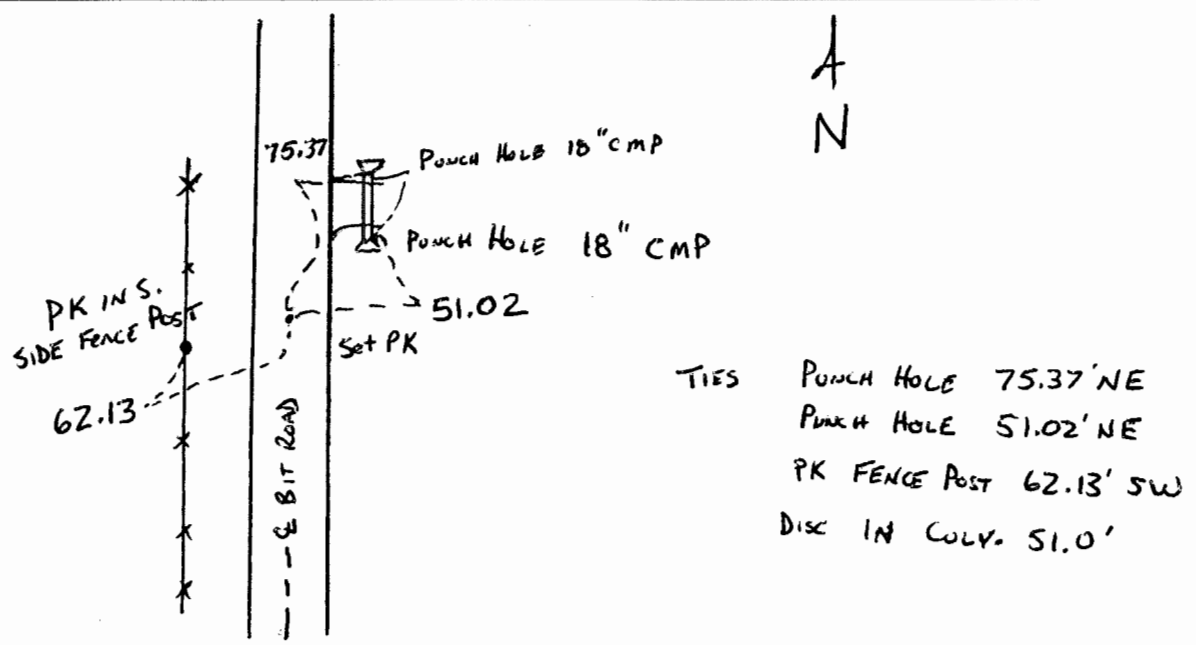 N
75.37
PUNCH HOLE 18" CMP
PUNCH HOLE 18" CMP
PK IN S.
SIDE FENCE POST
51.02
Set PK
62.13
℄ BIT ROAD
TIES PUNCH HOLE 75.37' NE
PUNCH HOLE 51.02' NE
PK FENCE POST 62.13' SW
DISC IN CULV. 51.0'